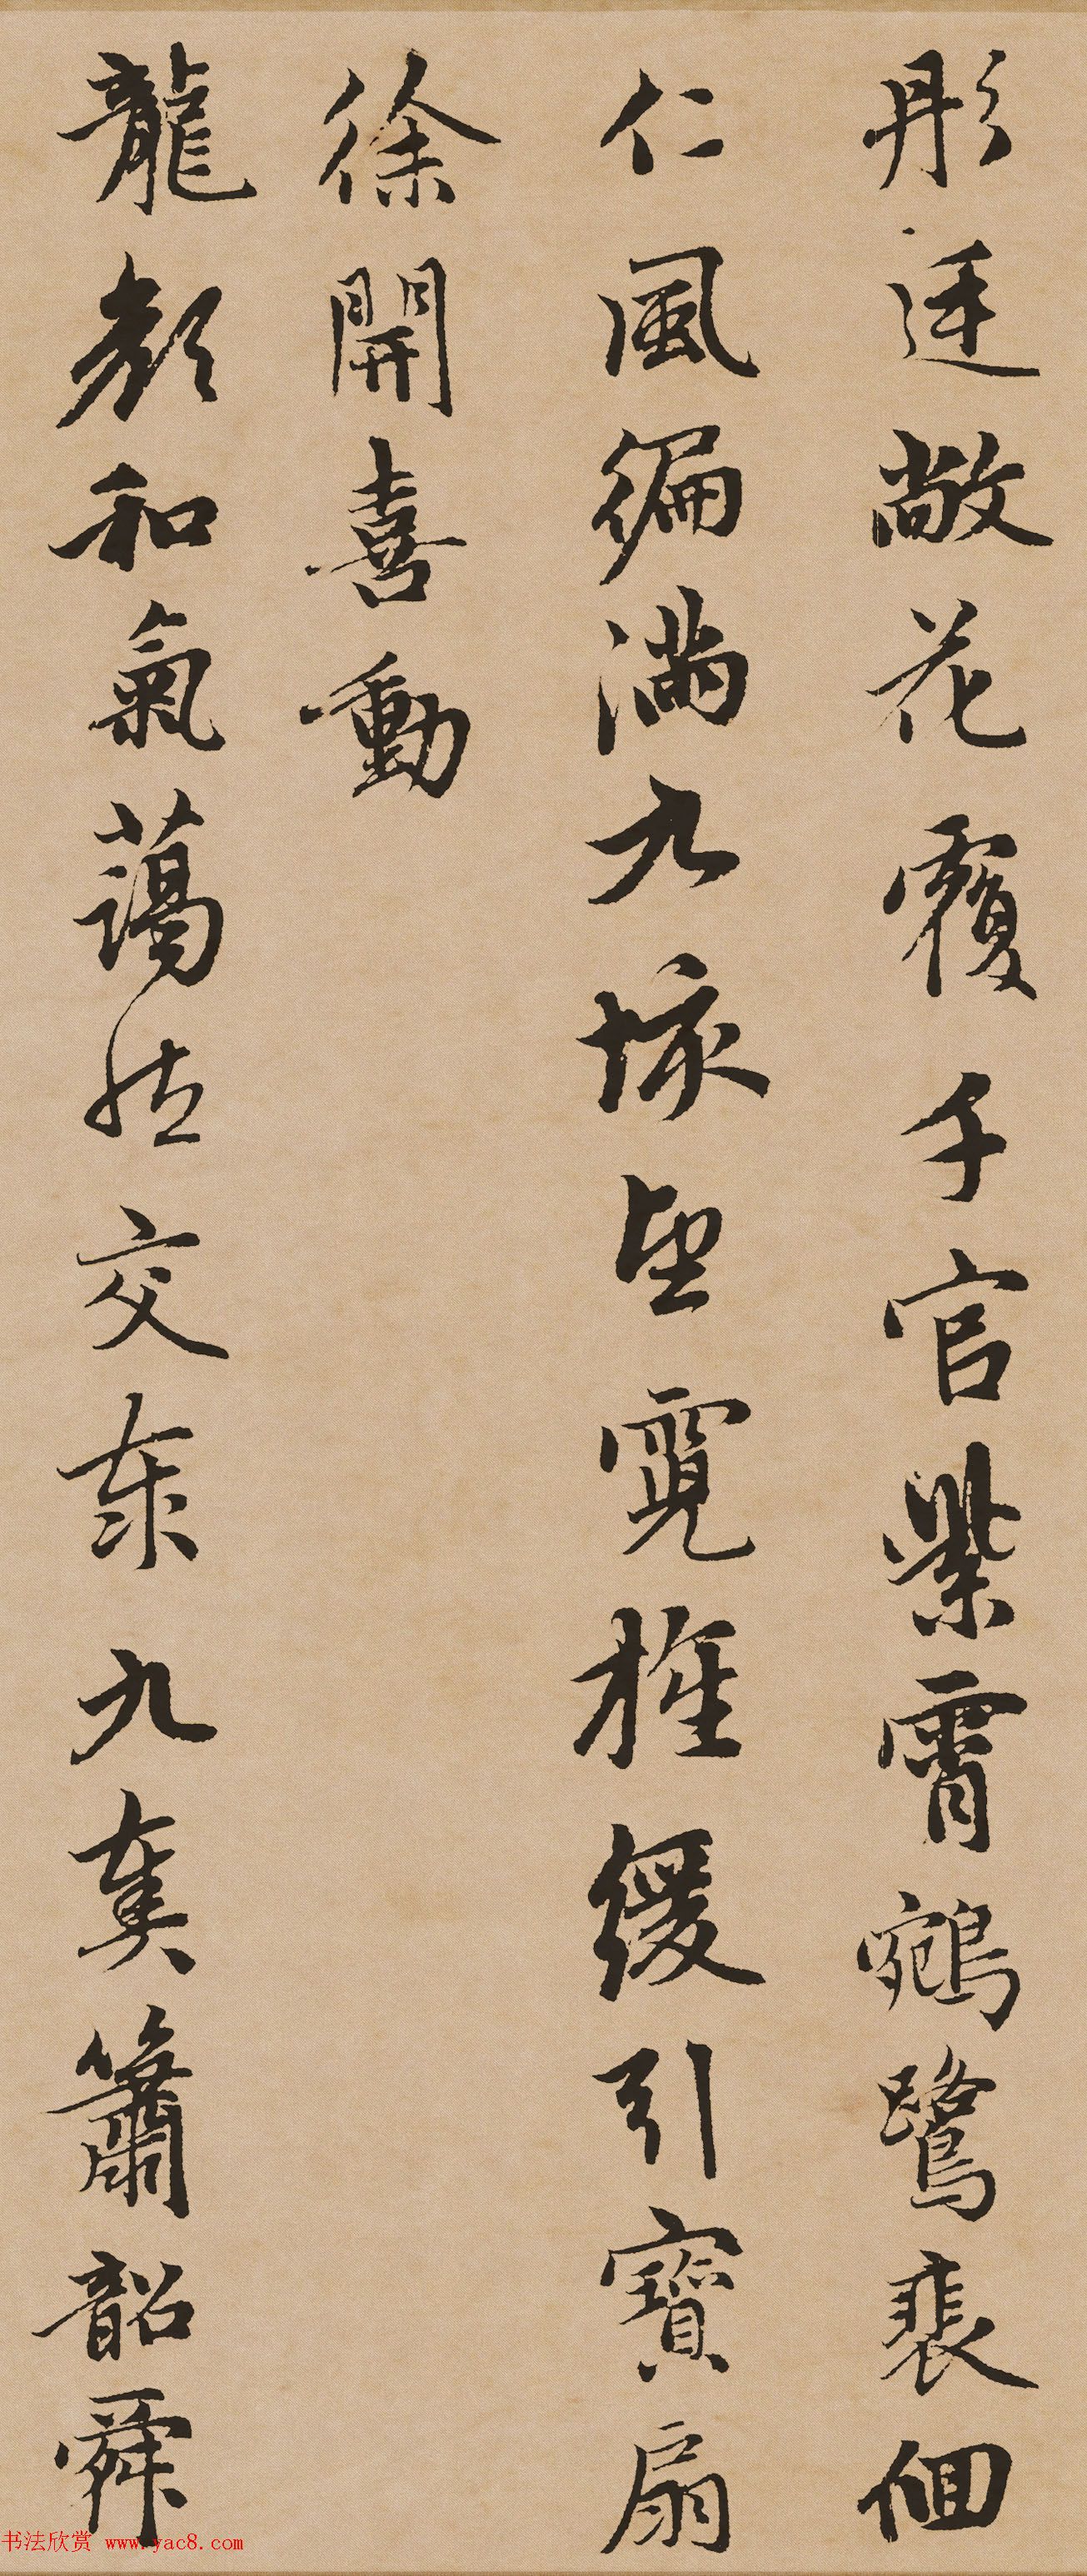 彤廷敞花覆千官紫霄鵷鷺裴佪
仁風徧滿九垓望霓旌緩引寶扇
徐開喜動
龍顏和氣藹然交泰九奏簫韶舜
书法欣赏 www.yac8.com